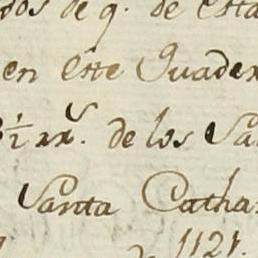 dos de q. de Esta
en Este Quader
½ rx.s de los Sa
Santa Catha
1121.